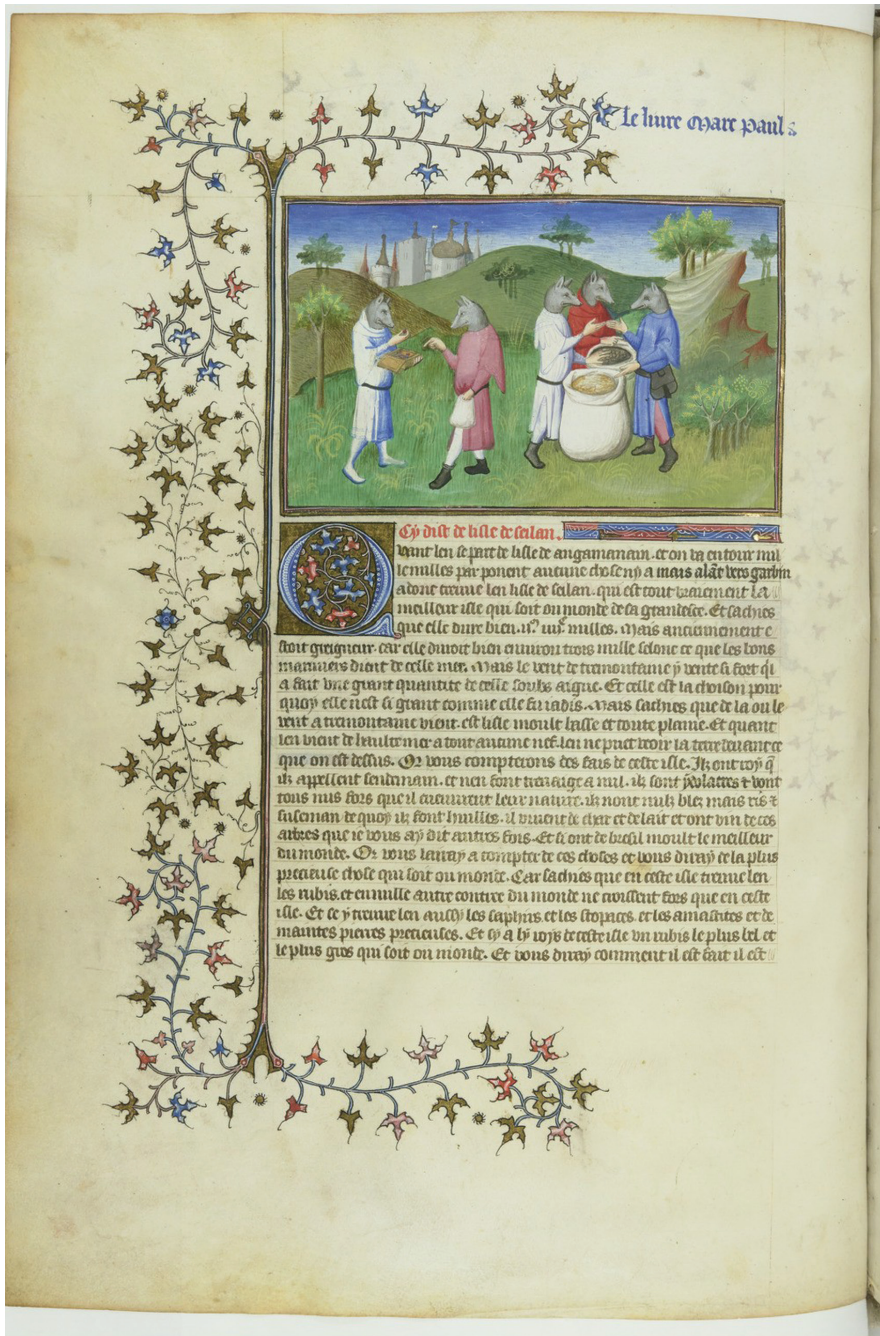 Le liure Marc Paul
Cy dist de lisle de seilan.
Quant len se part de lisle de angamanain. et on va entour mil
le milles par ponent aucune chose ny a mais alant vers garbin
adont treuue len lisle de seilan. qui est tout vraiement la
meilleur isle qui soit ou monde de sa grandesce. Et sachies
que elle dure bien. milles. Mais anciennement e
stoit greigneur. car elle duroit bien enuiron trois mille selonc ce que les bons
mariniers dient de celle mer. Mais le vent de tremontaine y vente si fort qi
a fait vne grant quantite de celle soubs aigue. Et celle est la choison pour
quoy elle nest si grant comme elle fu iadis. Mais sachies que de la ou le
vent a tremontaine vient. est lisle moult basse et toute plaine. Et quant
len vient de haulte mer a tout aucune nef. len ne puet veoir la terre deuant ce
que on est dessus. Or vous compterons des fais de ceste isle. Ilz ont roy q
ilz appellent sendemain. et neu sont treuage a nul. ilz sont ydolatres et vont
tous nus fors que il cueuurent leur nature. ilz nont nulz blez mais ris et
suseman de quoy ilz font huilles. il viuent de char et de lait et ont vin de ces
arbres que ie vous ay dit autres fois. Et si ont de bresil moult le meilleur
du monde. Or vous lairay a compter de ces choses et vous diray de la plus
precieuse chose qui soit ou monde. Car sachies que en ceste isle treuue len
les rubis. et en nulle autre contree du monde ne croissent fors que en ceste
isle. Et se y treuue len aussy les saphirs et les stopaces. et les amastites et de
maintes pierres precieuses. Et sy a ly roys de ceste isle vn rubis le plus bel et
le plus gros qui soit ou monde. Et vous diray comment il est fait il est